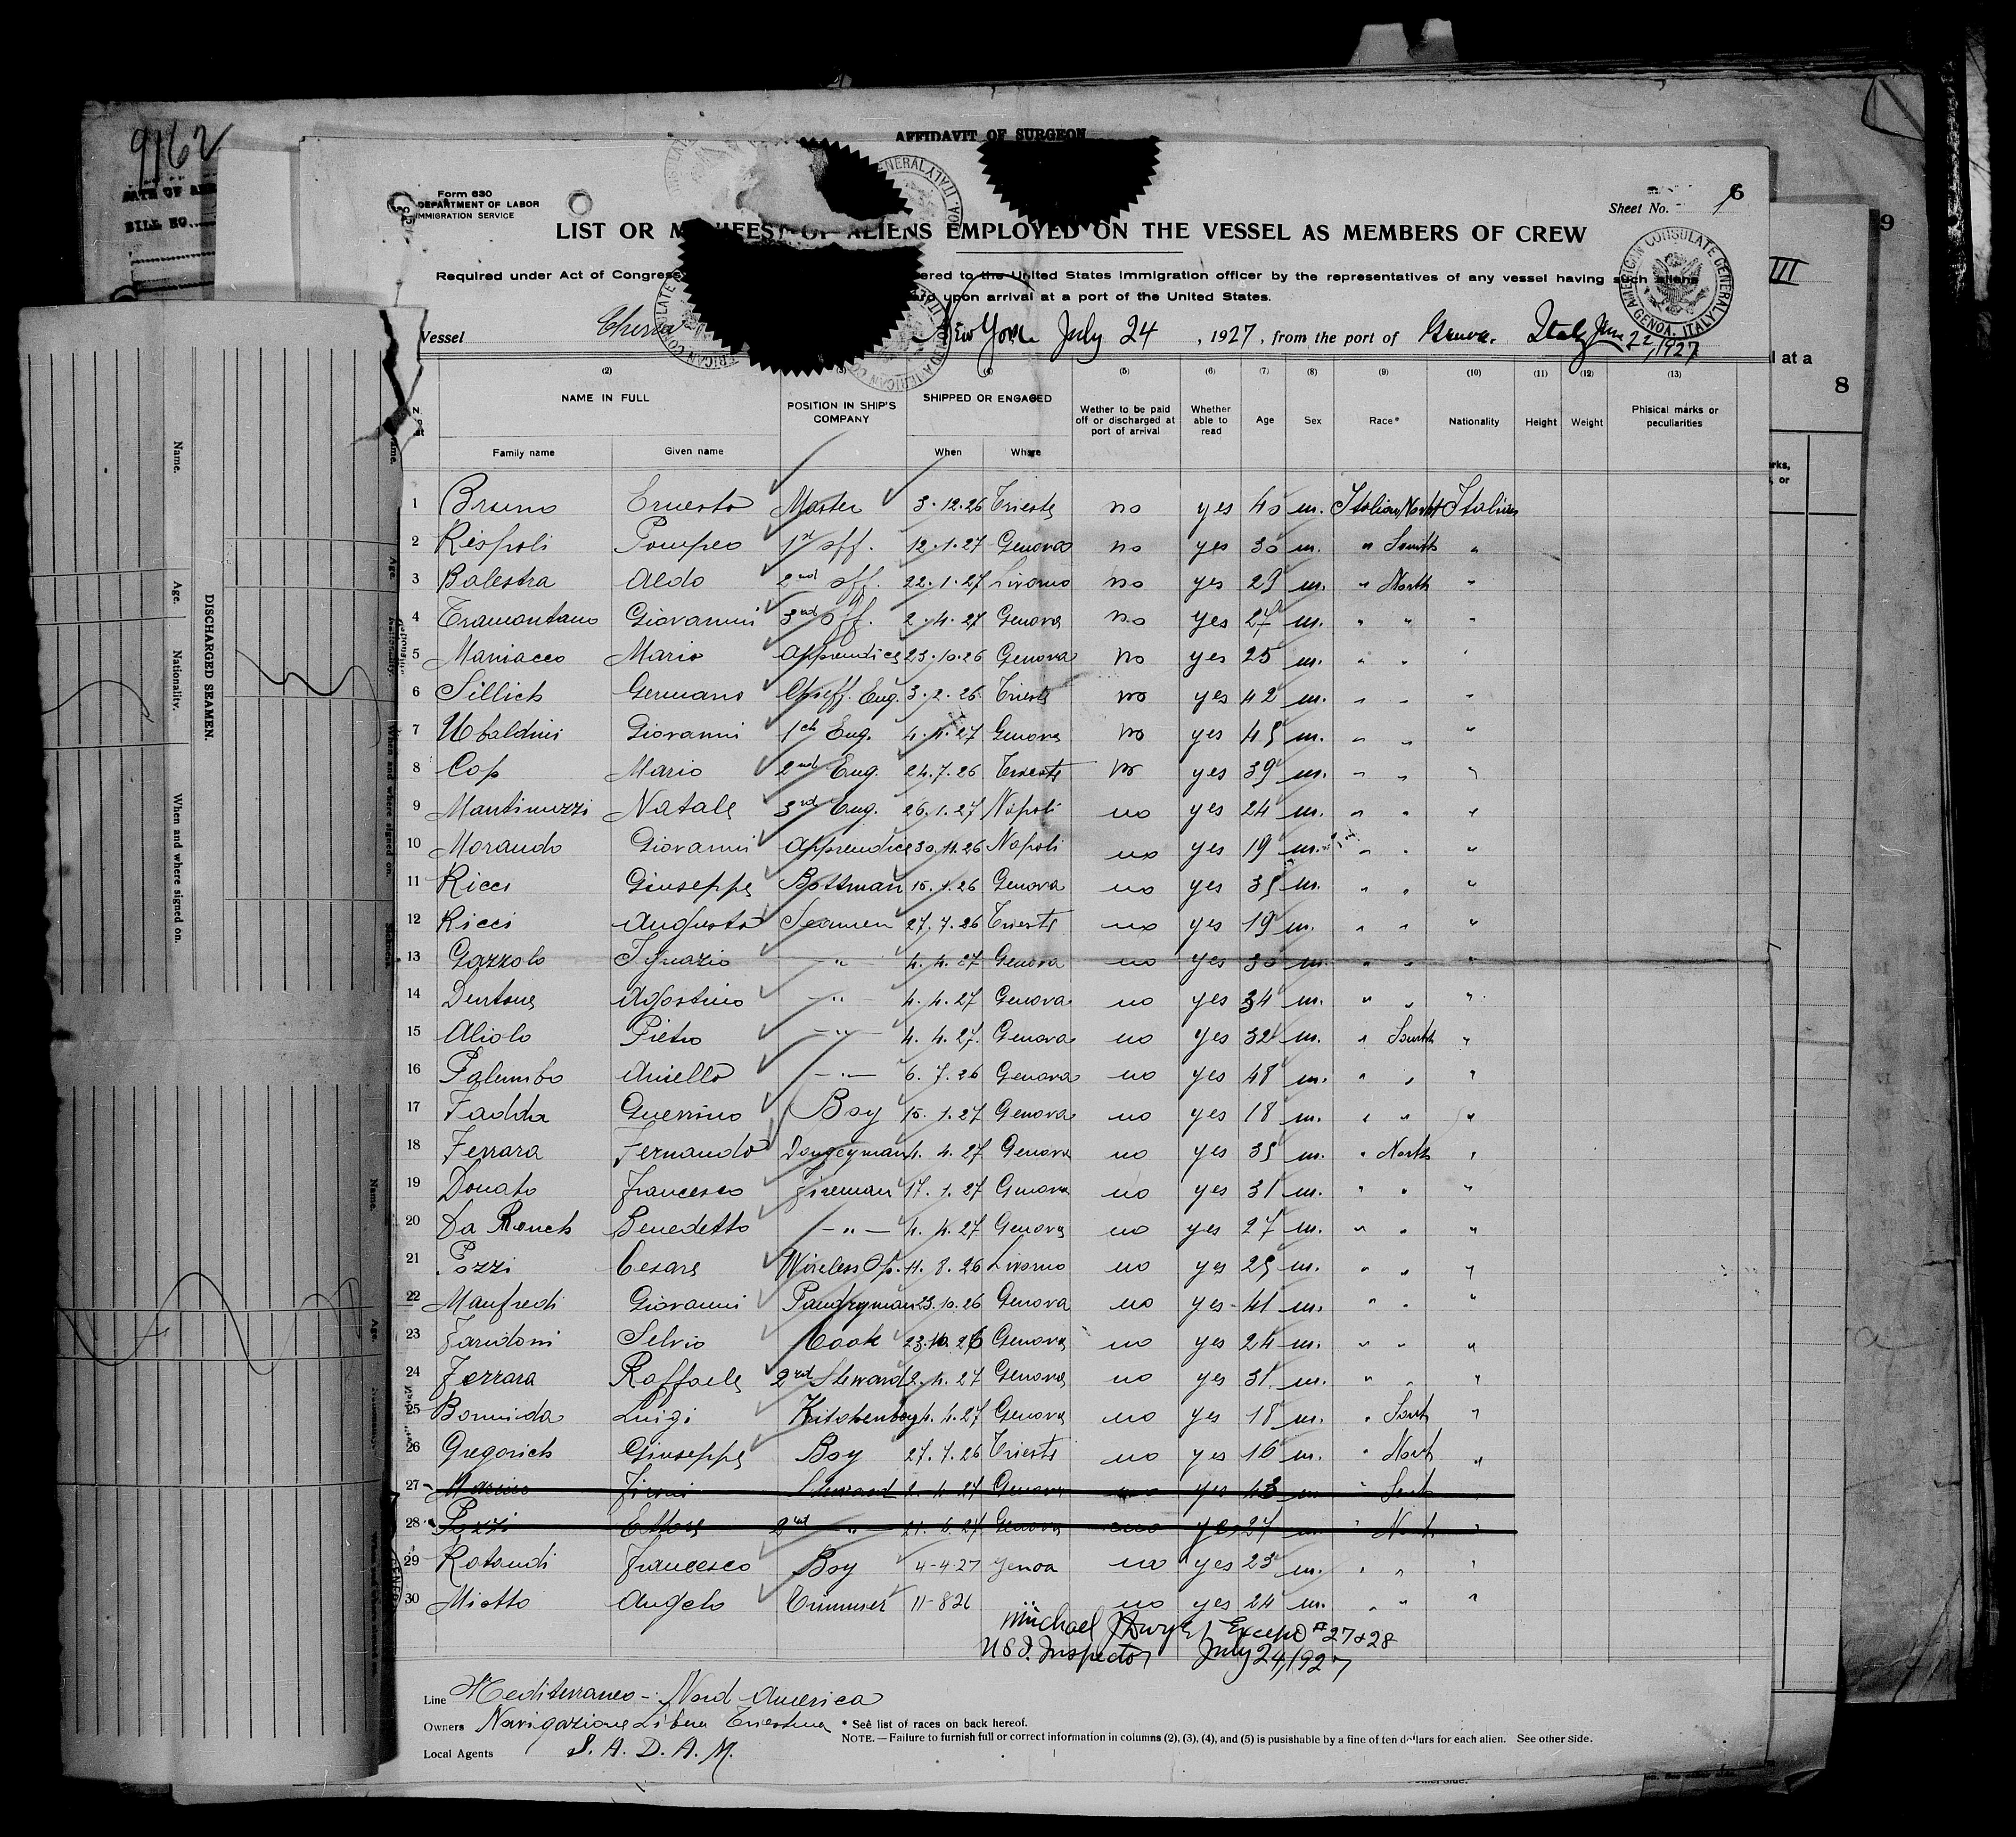 9162
DATE OF
BILL NO.
AFFIDAVIT OF SURGEON
Form 630
DEPARTMENT OF LABOR
IMMIGRATION SERVICE
Sheet No. 1
6
9
III
l at a
8
LIST OR MANIFEST OF ALIENS EMPLOYED ON THE VESSEL AS MEMBERS OF CREW
Required under Act of Congress ered to the United States Immigration officer by the representatives of any vessel having such aliens
rd upon arrival at a port of the United States.
AMERICAN CONSULATE GENERAL GENOA, ITALY
Vessel New York July 24, 1927, from the port of Genova. Italy June 22, 1927
(2) (3) (4) (5) (6) (7) (8) (9) (10) (11) (12) (13)
NAME IN FULL POSITION IN SHIP'S COMPANY SHIPPED OR ENGAGED Wether to be paid off or discharged at port of arrival Whether able to read Age Sex Race* Nationality Height Weight Phisical marks or peculiarities
Family name Given name When Where
1 Bruno Ernesto Master 3.12.26 Trieste no yes 40 m. Italian North Italian
2 Rispoli Pompeo 1st off. 12.1.27 Genova no yes 30 m. " South "
3 Balestra Aldo 2nd off. 22.1.27 Livorno no yes 29 m. " North "
4 Tramontano Giovanni 3rd off. 2.4.27 Genova no yes 27 m. " " "
5 Maniacco Mario Apprendice 23.10.26 Genova no yes 25 m. " " "
6 Sillich Germano Chieff. Eng. 3.2.26 Trieste no yes 42 m. " " "
7 Ubaldini Giovanni 1ch Eng. 4.4.27 Genova no yes 45 m. " " "
8 Cop Mario 2nd Eng. 24.7.26 Trieste no yes 39 m. " " "
9 Mantinuzzi Natale 3rd Eng. 26.1.27 Napoli no yes 24 m. " " "
10 Morando Giovanni Apprendice 30.11.26 Napoli no yes 19 m. " " "
11 Ricci Giuseppe Bottman 15.1.26 Genova no yes 35 m. " " "
12 Ricci Augusto Seamen 27.7.26 Trieste no yes 19 m. " " "
13 Gazzolo Ignazio " 4.4.27 Genova no yes 30 m. " " "
14 Dentone Agostino -"- 4.4.27 Genova no yes 34 m. " " "
15 Aliolo Pietro -"- 4.4.27. Genova no yes 32 m. " South "
16 Palumbo Aniello -"- 6.7.26 Genova no yes 48 m. " " "
17 Fadda Guerrino Boy 15.1.27 Genova no yes 18 m. " " "
18 Ferrara Fernando Dongeyman 4.4.27 Genova no yes 35 m. " North "
19 Donato Francesco Fireman 17.1.27 Genova no yes 31 m. " " "
20 Da Ronch Benedetto -"- 4.4.27 Genova no yes 27 m. " " "
21 Pozzi Cesare Wireless Op. 11.8.26 Livorno no yes 25 m. " " "
22 Manfredi Giovanni Pandryman 23.10.26 Genova no yes 41 m. " " "
23 Fardoni Selvio Cook 23.10.26 Genova no yes 24 m. " " "
24 Ferrara Raffaele 2nd Steward 2.4.27 Genova no yes 31 m. " " "
25 Bormida Luigi Kitchenboy 4.4.27 Genova no yes 18 m. " South "
26 Gregorich Giuseppe Boy 27.7.26 Trieste no yes 16 m. " North "
27 Marino Steward 2.4.27 Genova no yes 43 m " South "
28 Pozzi Ettore 2nd " 21.6.27 Genova no yes 27 m. " North "
29 Rotondi Francesco Boy 4-4-27 Genoa no yes 23 m. " " "
30 Miotto Angelo Trimmer 11-826 " no yes 24 m. " " "
Michael J Dwyer Except #27 & 28
U S I. Inspector July 24, 1927
Line Mediterraneo - Nord America
Owners Navigazione Libera Triestina
Local Agents S. A. D. A. M.
* See list of races on back hereof.
NOTE. — Failure to furnish full or correct information in columns (2), (3), (4), and (5) is pusishable by a fine of ten dollars for each alien. See other side.
DISCHARGED SEAMEN.
Name. Age. Nationality. When and where signed on.
Name. Age.